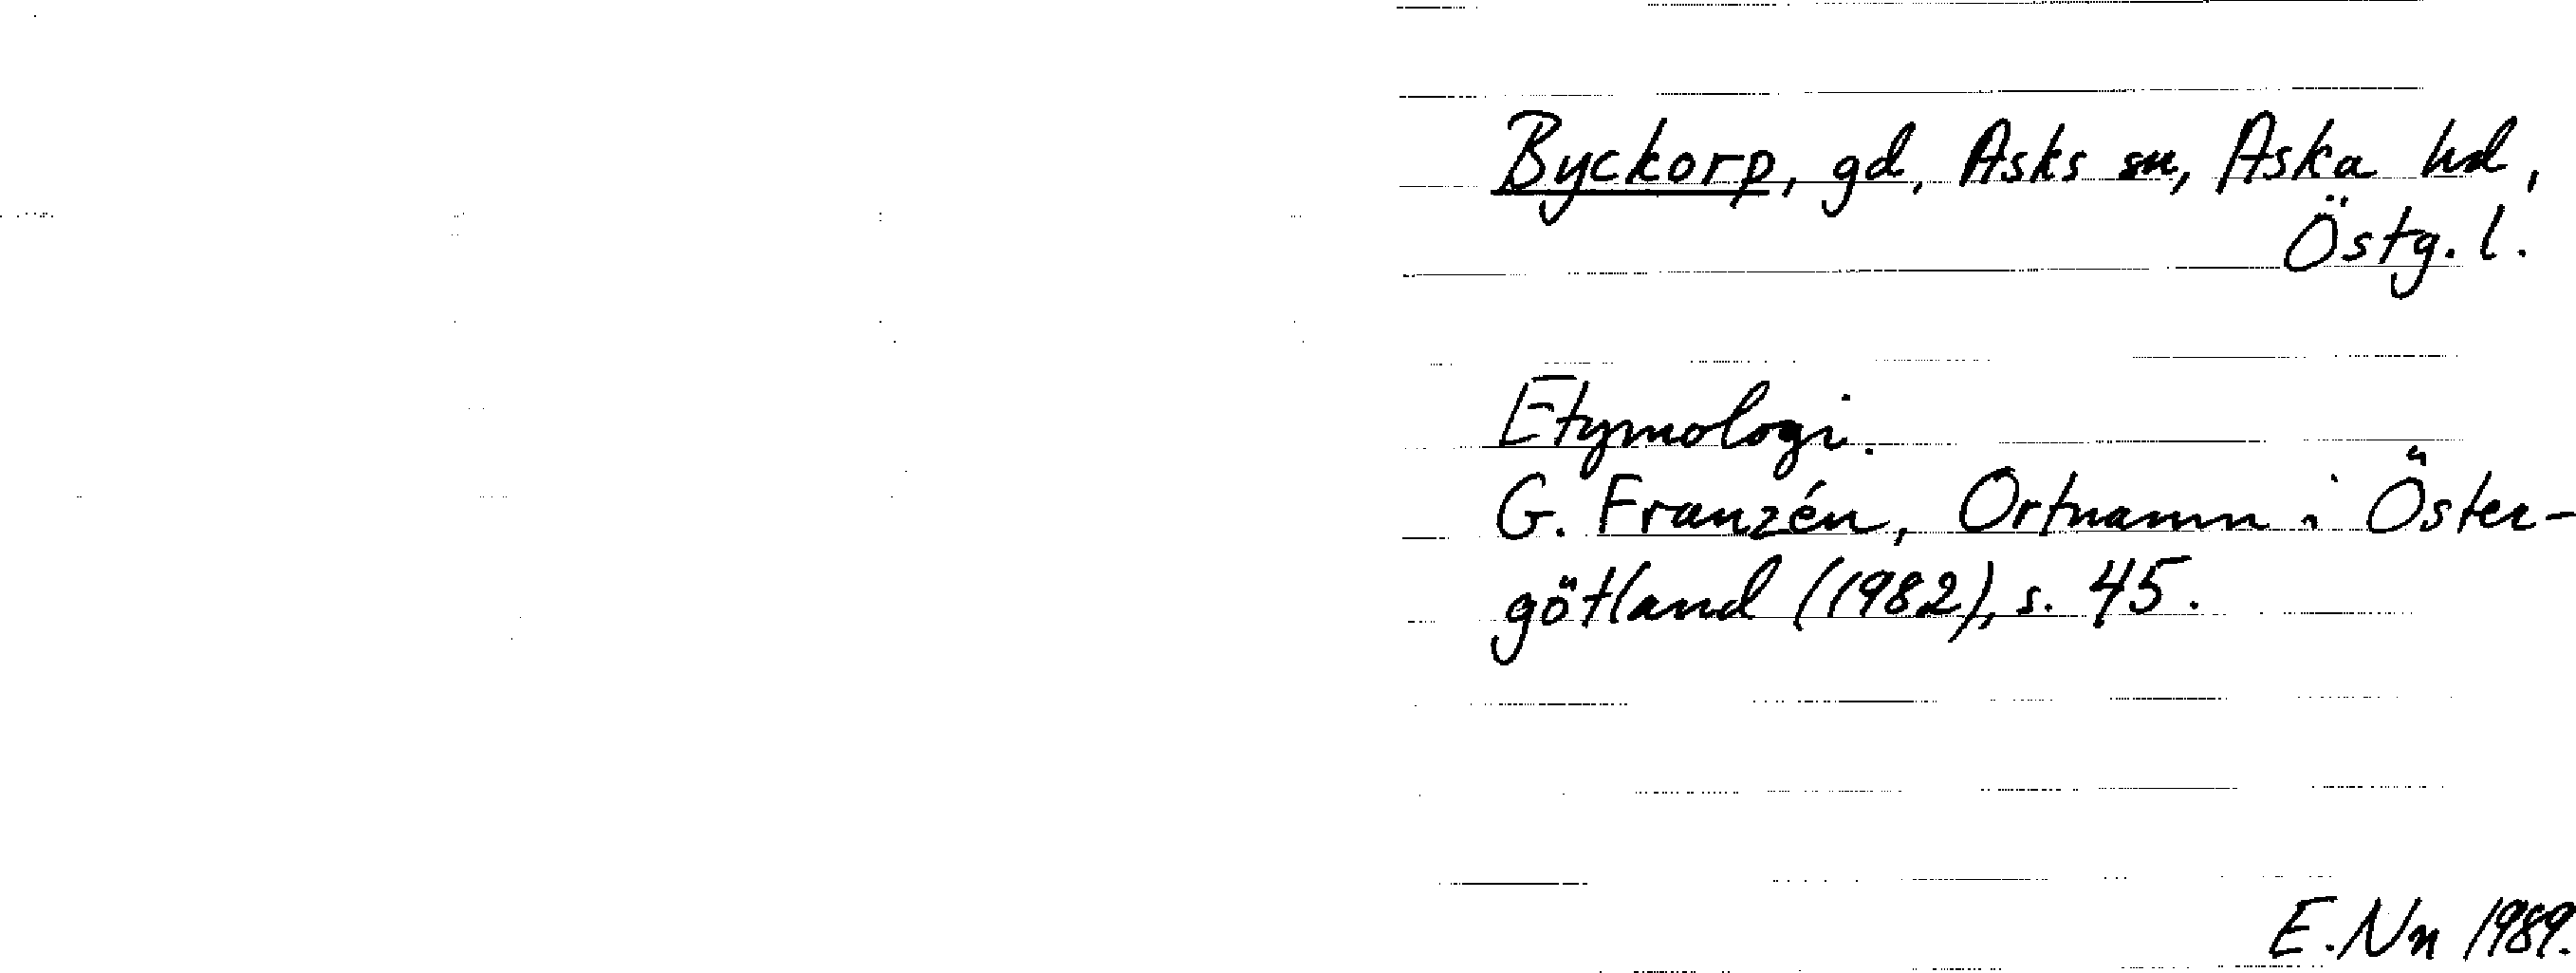 Byckorp, gd, Asks sn, Aska hd,
Östg. l.
Etymologi.
G. Franzén, Ortnamn i Öster-
götland (1982), s. 45.
E. Nn 1989.